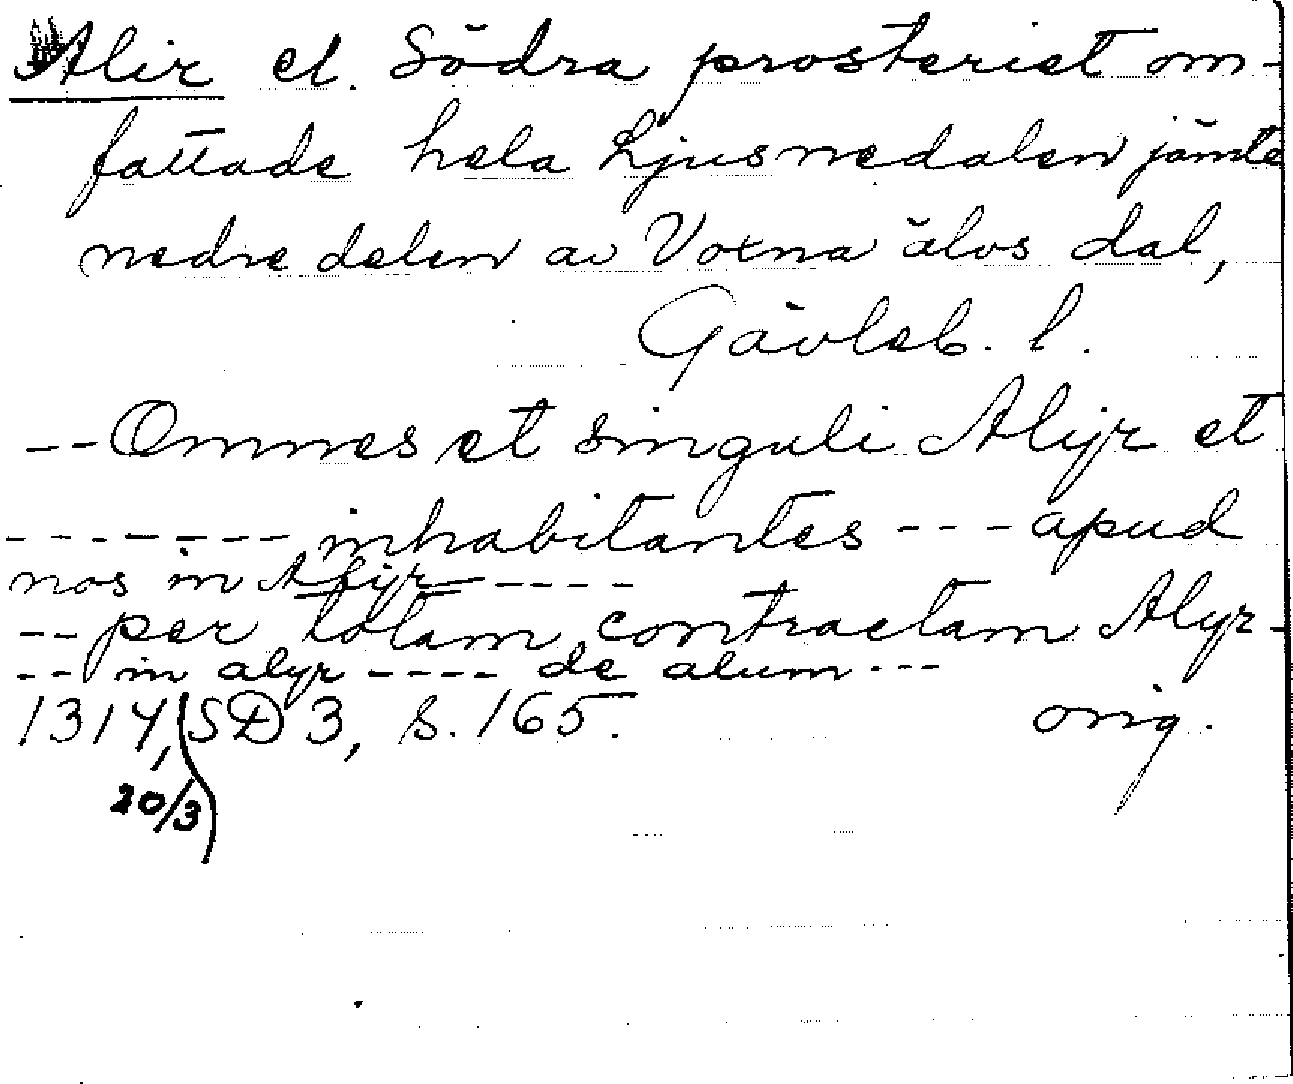 Alir el. Södra prosteriet om-
fattade hela Ljusnedalen jämte
nedre delen av Voxna älvs dal,
Gävleb. l.
-- Omnes et singuli Alijr et
-------- inhabitantes --- apud
nos in Alijr -----
-- per totam contractam Alyr-
-- in alyr ---- de alum ---
1314, SD 3, s. 165. orig.
20/3